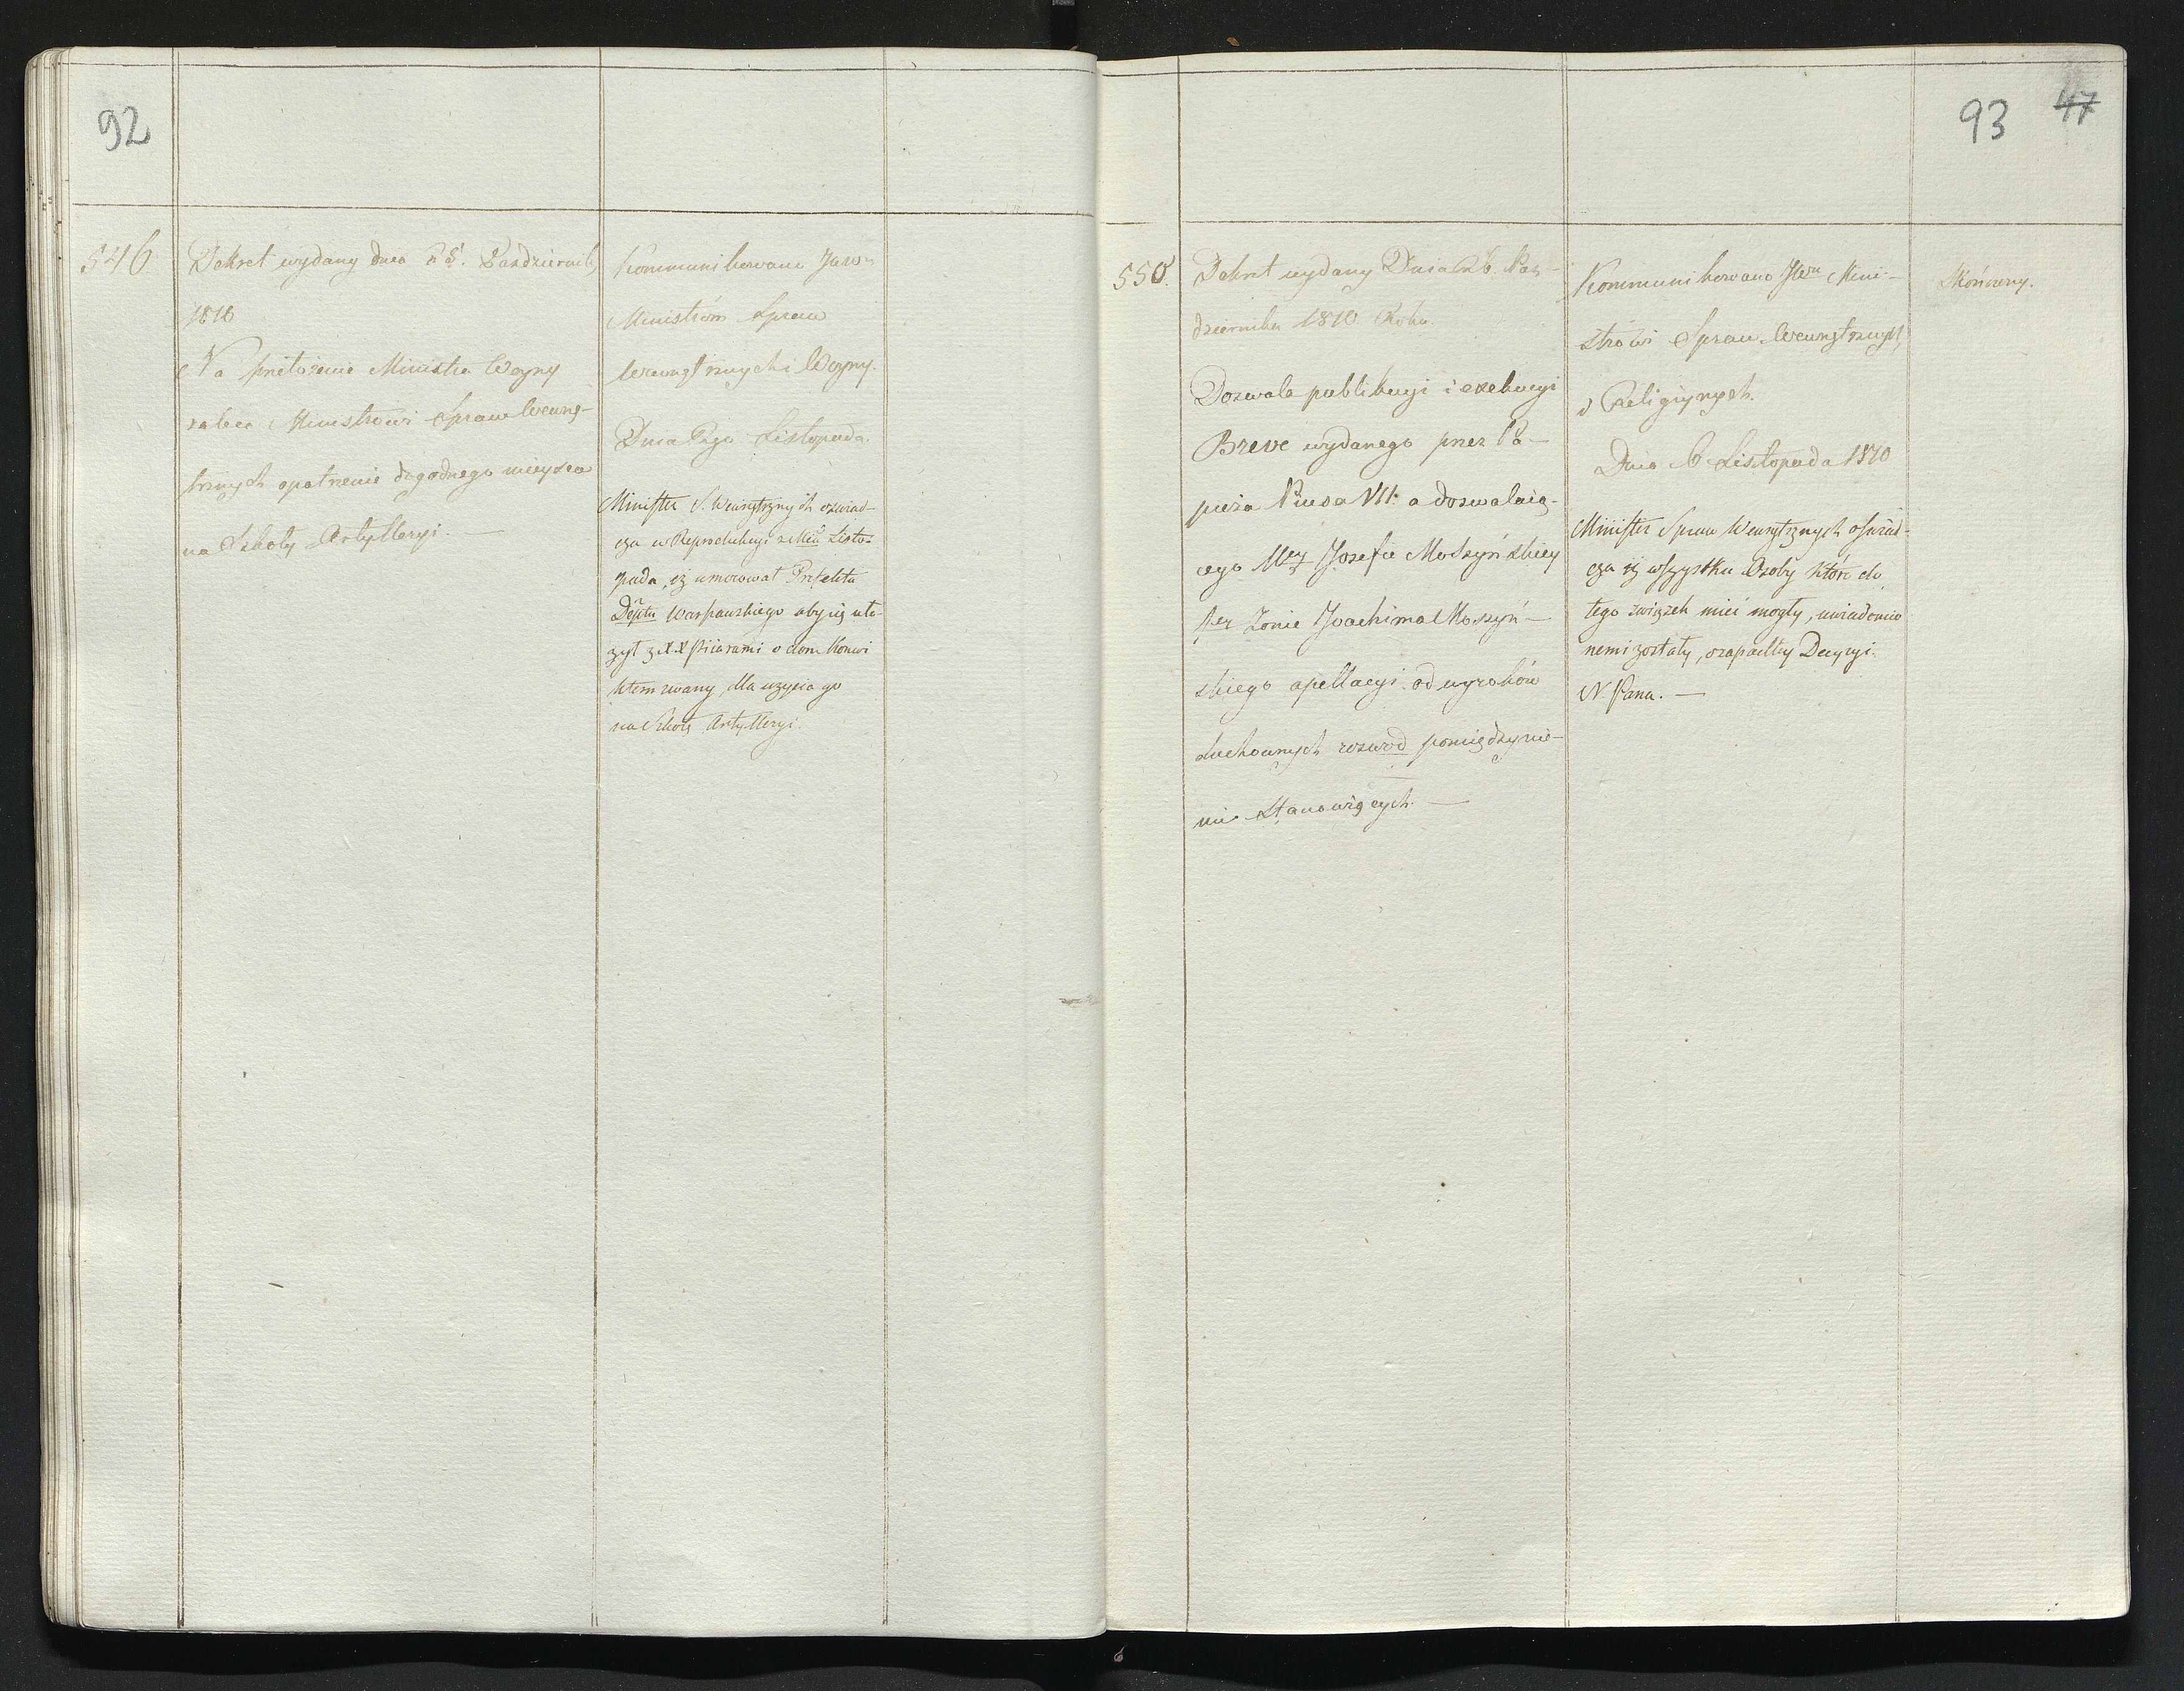 92
546
Dekret wydany dnia 28. Październik
1810
Na przełożenie Ministra Woyny
zaleca Ministrowi Spraw Wewnę-
trznych opatrzenie dogodnego mieysca
na Szkoły Artylleryi. —
Kommunikowano
Ministróm Spraw
Wewnętrznych i Woyny.
Dnia Listopada.
Minister S. Wewnętrznych oświad-
cza w Reprodukcyi Listo-
pada, iż umocował Prefekta
Deptu Warszawskiego aby się uło-
żył z X.X Piiarami o dom Konwi
ktem zwany, dla użycia go
na Szkołę Artylleryi.
93 47
550.
Dekret wydany Dnia 26. Paź-
dziernika 1810 Roku.
Dozwala publikacyi i exekucyi
Breve wydanego przez Pa-
pieża Piusa VII. a dozwalaią-
cego Józefie Moszyńskiey
Żonie Joachima Moszyń-
skiego apellacyi od wyroków
duchownych rozwod pomiędzy nie-
mi stanowiących. —
Kommunikowano JWu Mini-
strowi Spraw Wewnętrznych
i Religiynych.
Dnia 6 Listopada 1810
Minister Spraw Wewnętrznych oświad-
cza iż wszystkie Osoby które do
tego związek mieć mogły, uwiadomio
nemi zostały, o zapadłey Decyzyi
N. Pana. —
Skończony.